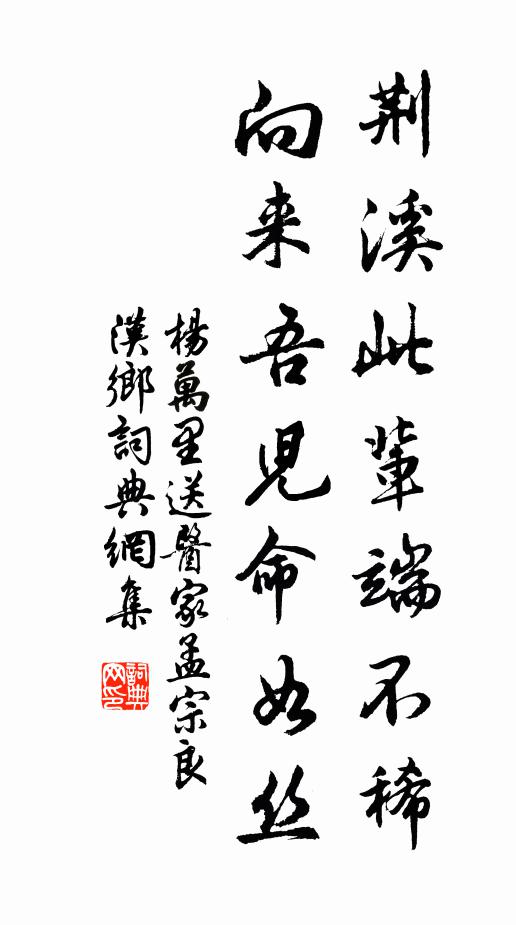 荆溪此輩端不稀
向来吾兒命如丝
楊萬里送醫家孟宗良
漢鄉詞典網集
詞典網印